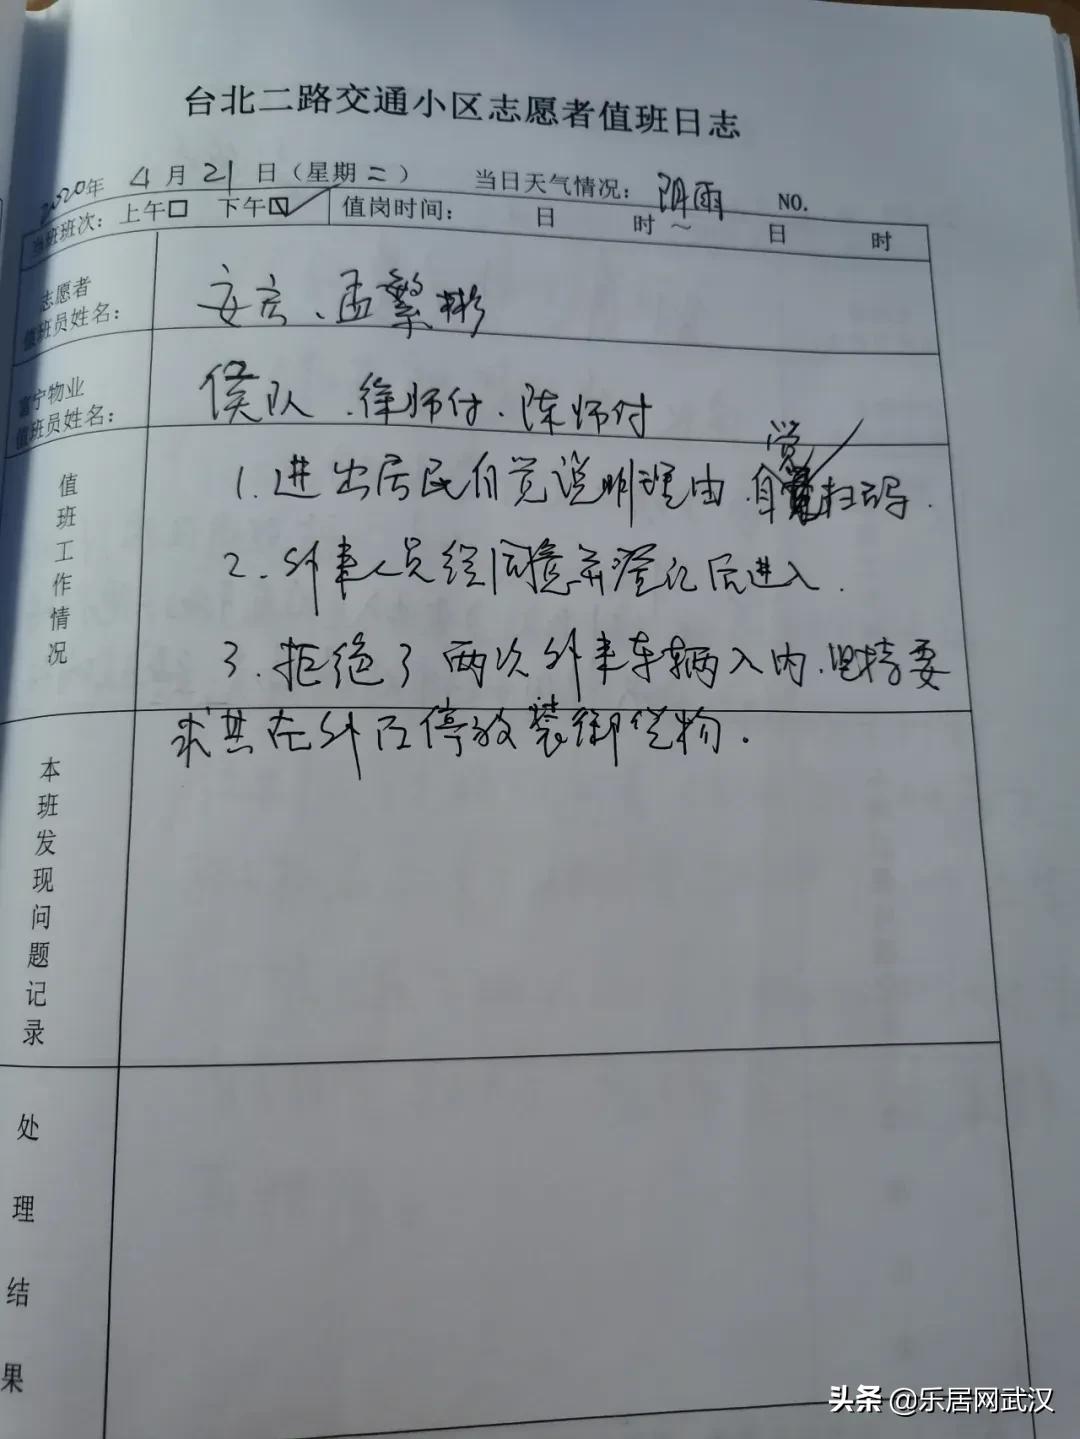 台北二路交通小区志愿者值班日志
2020年 4月21日（星期二） 当日天气情况：阴雨 NO.
当班班次：上午□ 下午☑ 值岗时间： 日 时～ 日 时
志愿者
值班员姓名：
安庆、孟繁彬
富宁物业
值班员姓名：
侯队、徐师付、陈师付
值班工作情况
1. 进出居民自觉说明理由 自觉扫码.
2. 外来人员经同意并登记后进入.
3. 拒绝了两次外来车辆入内、坚持要
求其在外面停放装卸货物.
本班发现问题记录
处理结果
头条 @乐居网武汉